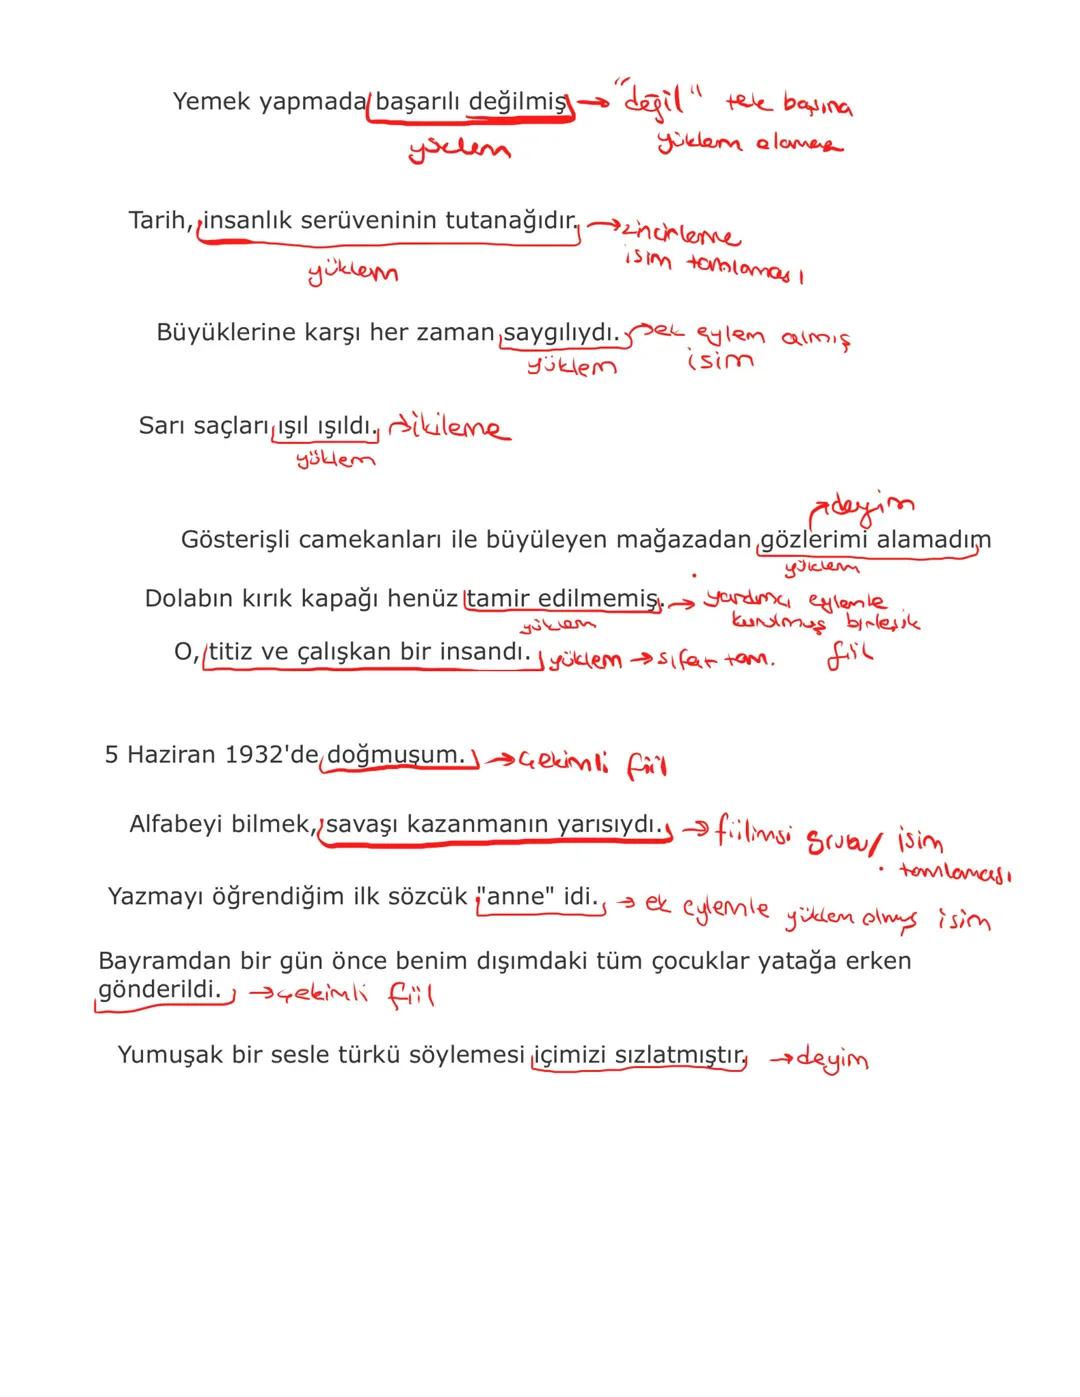 Yemek yapmada başarılı değilmiş → "değil" tek başına
yüklem yüklem olamaz
Tarih, insanlık serüveninin tutanağıdır. → zincirleme
yüklem isim tamlaması
Büyüklerine karşı her zaman saygılıydı. → ek eylem almış
yüklem isim
Sarı saçları ışıl ışıldı. → ikileme
yüklem
→ deyim
Gösterişli camekanları ile büyüleyen mağazadan gözlerimi alamadım
yüklem
Dolabın kırık kapağı henüz tamir edilmemiş. → yardımcı eylemle
yüklem kurulmuş birleşik
O, titiz ve çalışkan bir insandı. yüklem → sıfat tam. fiil
5 Haziran 1932'de doğmuşum. → çekimli fiil
Alfabeyi bilmek, savaşı kazanmanın yarısıydı. → fiilimsi grubu/ isim
tamlaması
Yazmayı öğrendiğim ilk sözcük "anne" idi. → ek eylemle yüklem olmuş isim
Bayramdan bir gün önce benim dışımdaki tüm çocuklar yatağa erken
gönderildi. → çekimli fiil
Yumuşak bir sesle türkü söylemesi içimizi sızlatmıştır. → deyim